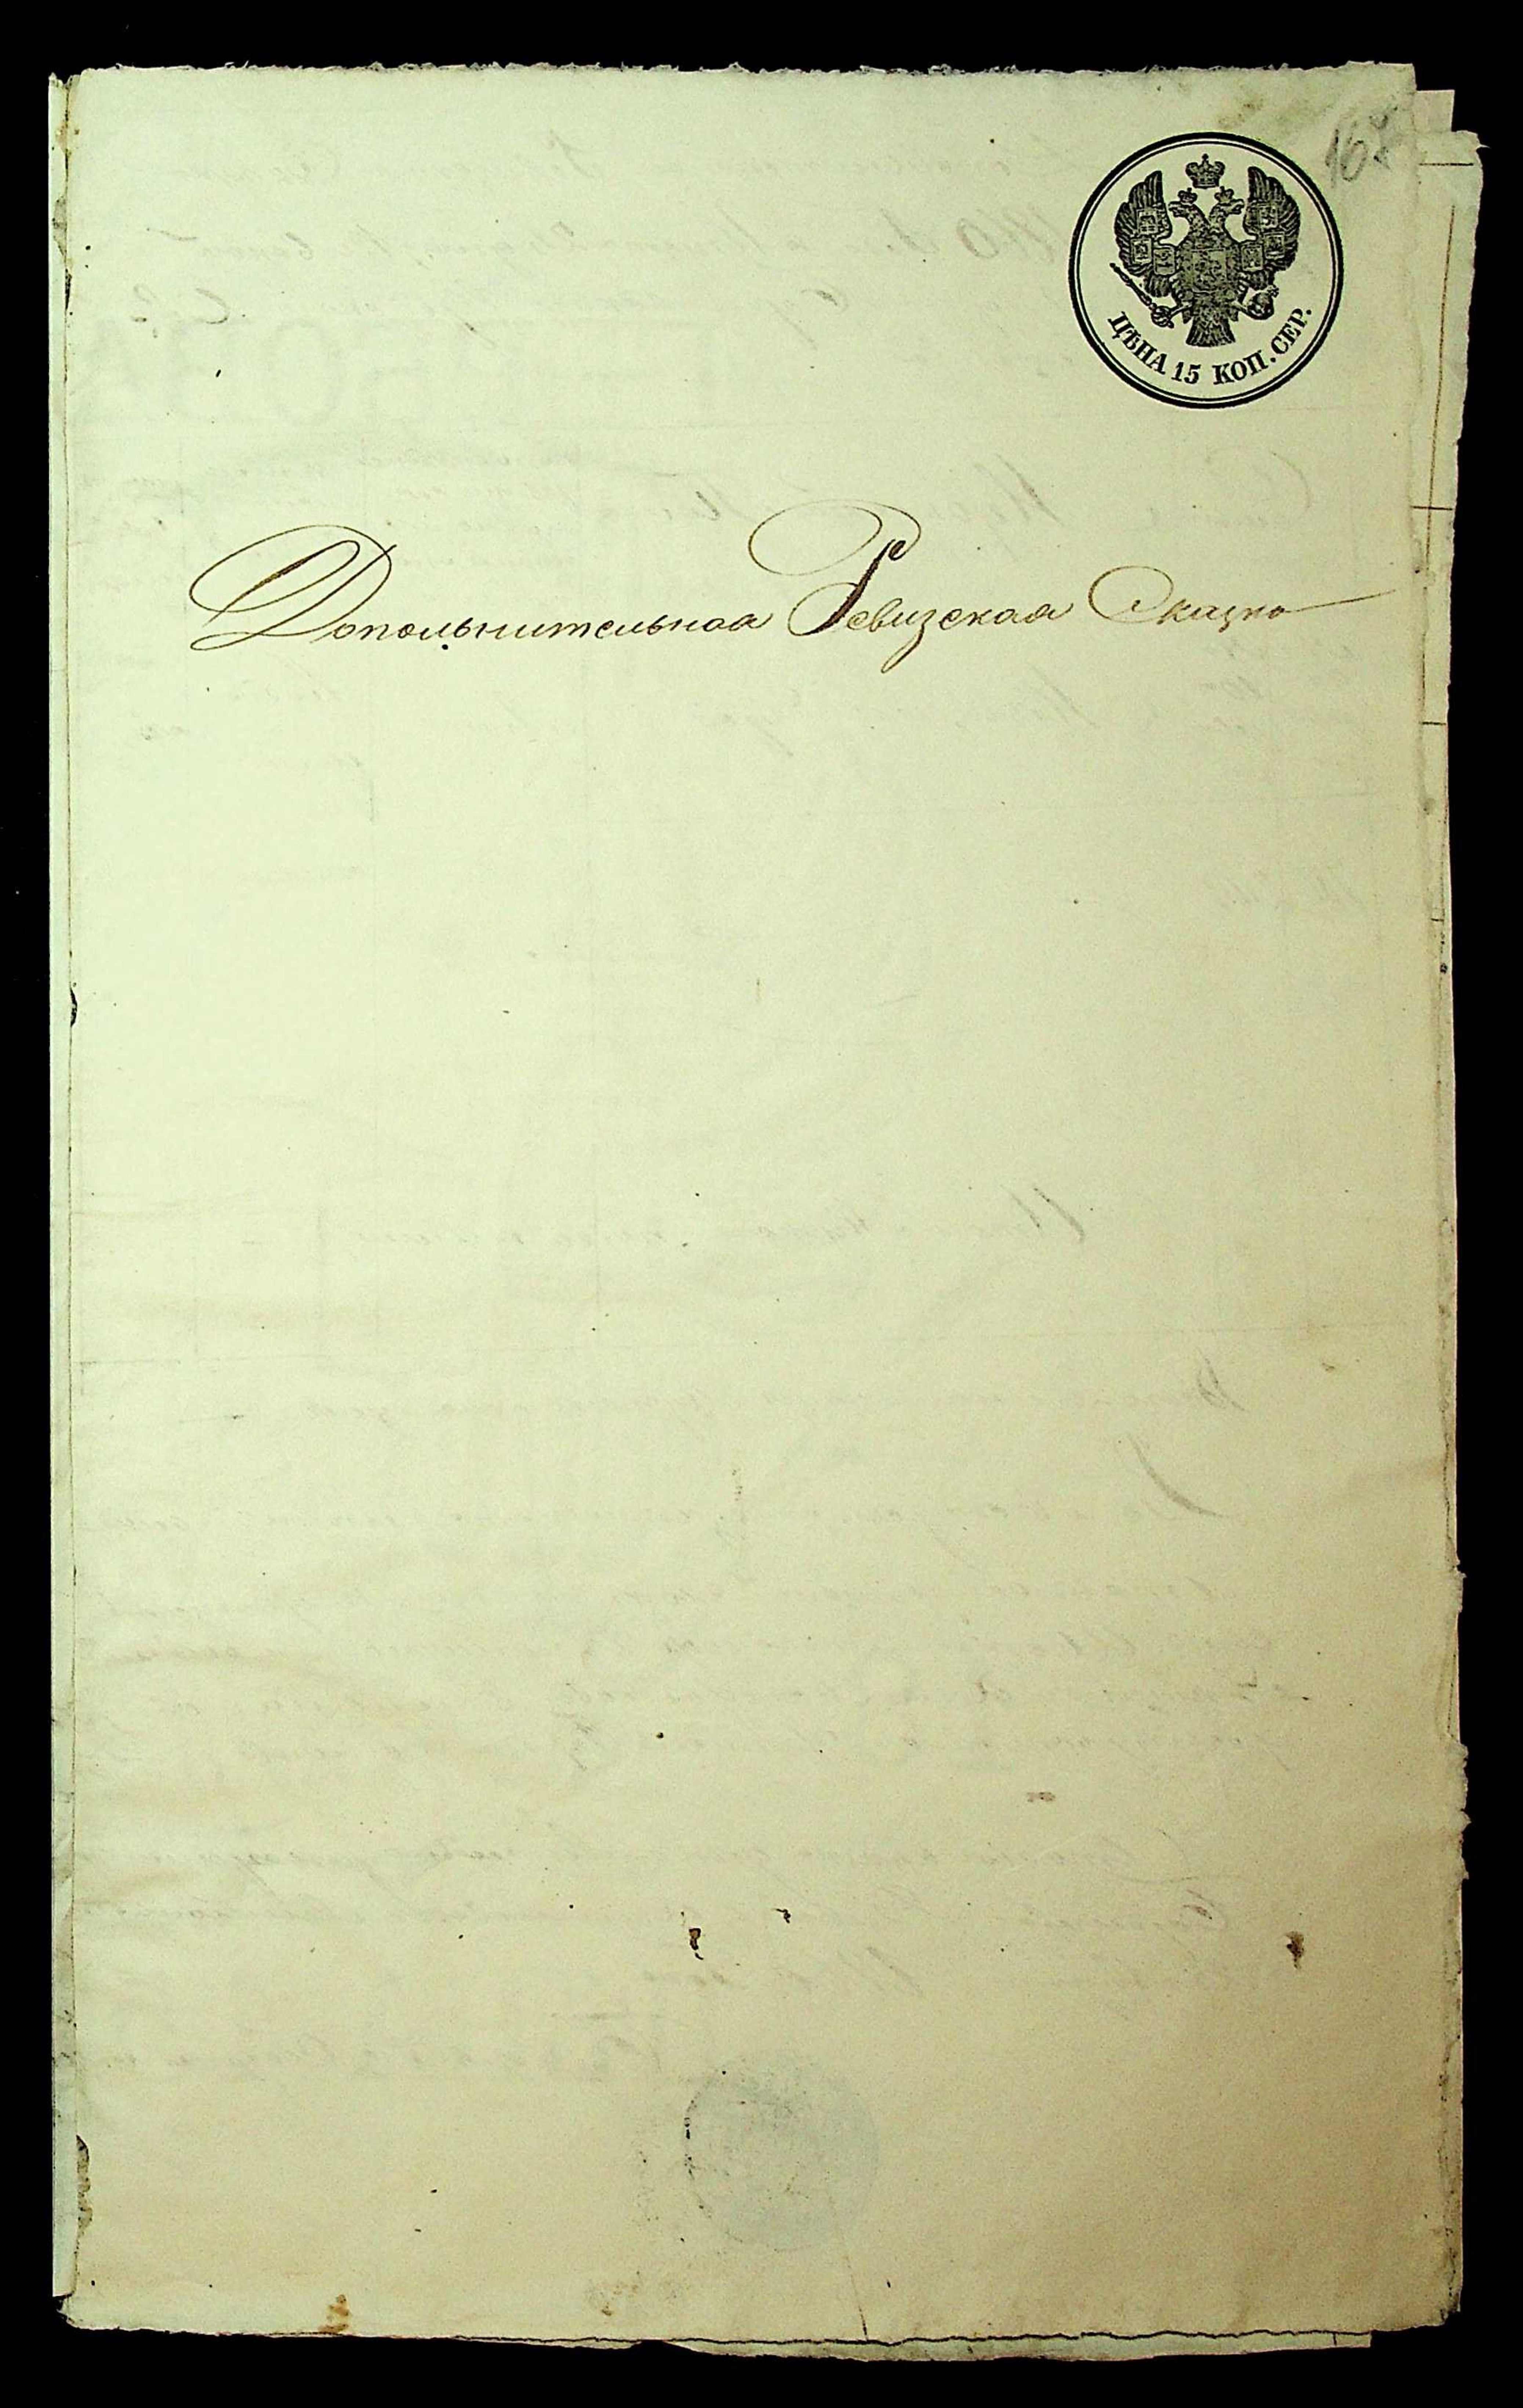 167
ЦѢНА 15 КОП. СЕР.
Допольнительная Ревизская Сказка